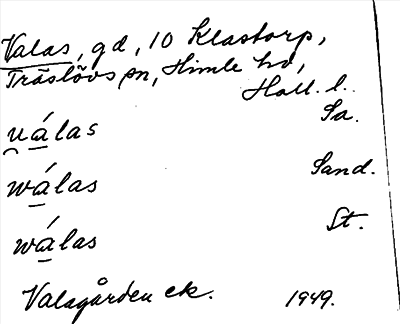 Valas, gd, 10 Klastorp,
Träslövs sn, Himle hd,
Hall. l.
Sa.
u̯á̱las
Sand.
wá̱las
St.
wá̱las
Valagården ek. 1949.